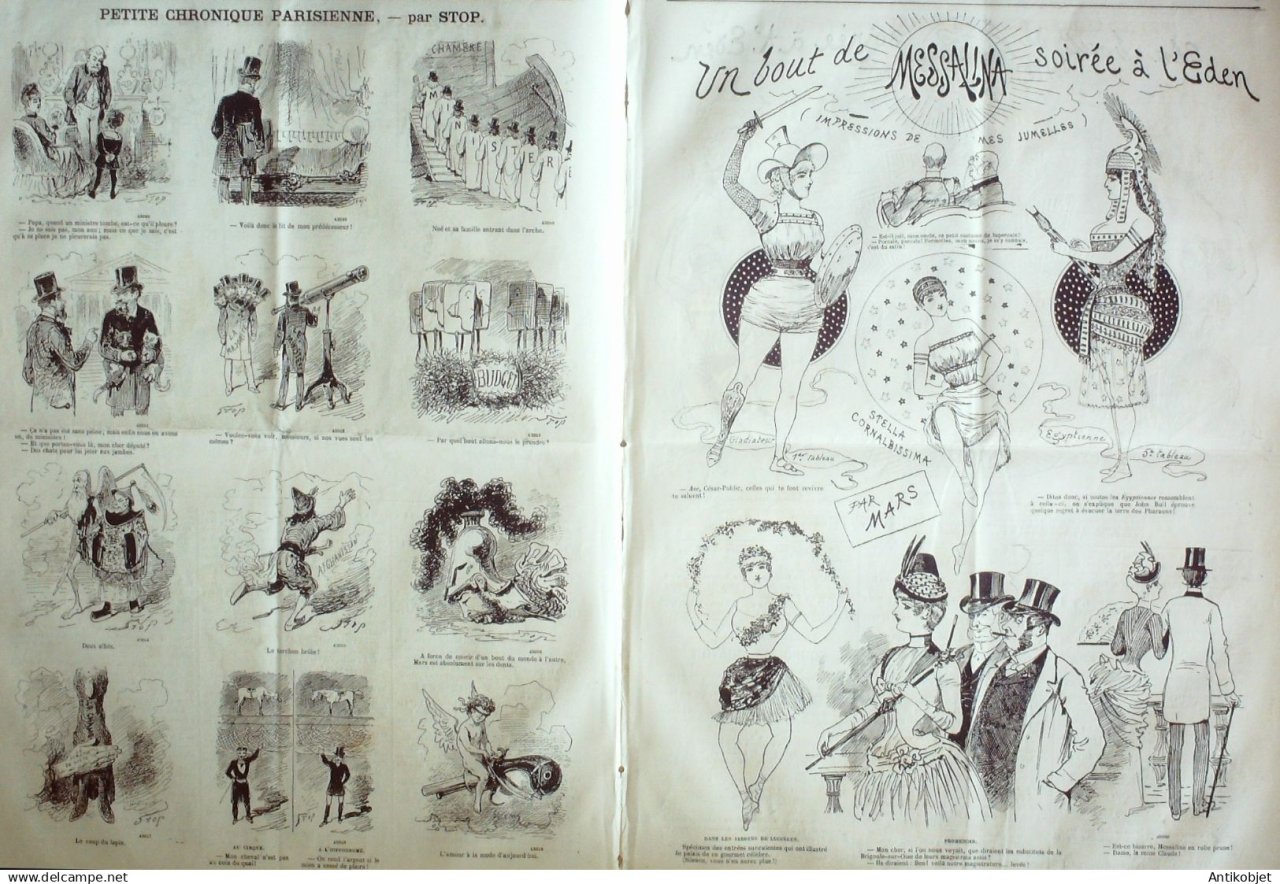 PETITE CHRONIQUE PARISIENNE, — par STOP.
CHAMBRE
MINISTER
STOP
— Papa, quand un ministre tombe, est-ce qu'il pleure?
— Je ne sais pas, mon ami; mais ce que je sais, c'est
qu'à sa place je ne pleurerais pas.
— Voilà donc le lit de mon prédécesseur!
Noé et sa famille entrant dans l'arche.
BUDGET
STOP
— Ça n'a pas été sans peine, mais enfin nous en avons
un, de ministère!
— Et que portez-vous là, mon cher député?
— Des chats pour lui jeter aux jambes.
— Voulez-vous voir, messieurs, si nos vues sont les
mêmes?
— Par quel bout allons-nous le prendre?
STOP
Deux alliés.
Le torchon brûle!
A force de courir d'un bout du monde à l'autre,
Mars est absolument sur les dents.
STOP
Le coup du lapin.
AU CIRQUE.
— Mon cheval n'est pas
au coin du quai!
A L'HIPPODROME.
— On rend l'argent si le
mien a cessé de plaire!
L'amour à la mode d'aujourd'hui.
Un bout de MESSALINA soirée à l'Eden
(IMPRESSIONS DE MES JUMELLES)
— Est-il joli, mon oncle, ce petit costume de
c'est du satin!
Gladiateur
1er tableau
STELLA
CORNALBISSIMA
Egyptienne
5e tableau
— Ave, César-Public, celles qui te font revivre
te saluent!
PAR
MARS
— Dites donc, si toutes les Égyptiennes ressemblent
à celle-ci, on s'explique que John Bull éprouve
quelque regret à évacuer la terre des Pharaons!
DANS LES JARDINS DE LUCULLUS.
Spécimen des entrées succulentes qui ont illustré
le palais de ce gourmet célèbre.
(Silence, vous n'en aurez plus!)
PROMENOIR.
— Mon cher, si l'on nous voyait, que diraient les substituts de la
Brigoule-sur-Oise de leurs magistrats assis?
— Ils diraient: Bon! voilà notre magistrature... levée!
— Est-ce bizarre, Messaline en robe prune!
— Dame, la reine Claude!
© Antikobjet